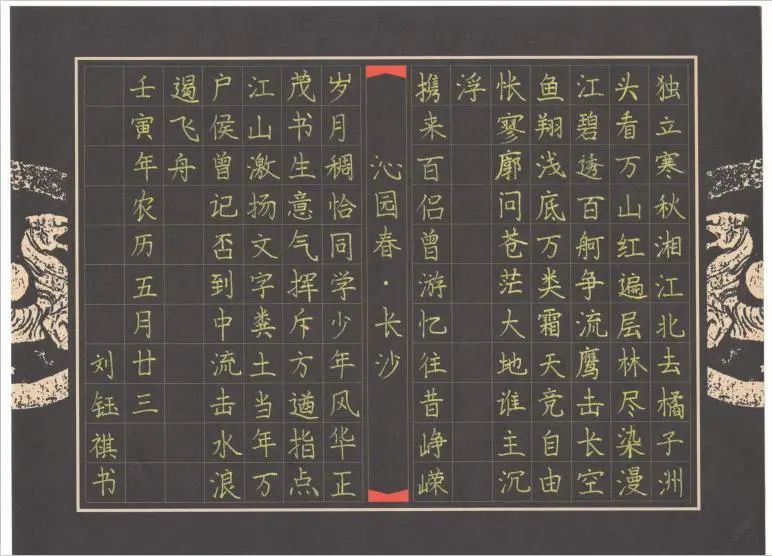 独立寒秋湘江北去橘子洲
头看万山红遍层林尽染漫
江碧透百舸争流鹰击长空
鱼翔浅底万类霜天竞自由
怅寥廓问苍茫大地谁主沉
浮
携来百侣曾游忆往昔峥嵘
沁园春·长沙
岁月稠恰同学少年风华正
茂书生意气挥斥方遒指点
江山激扬文字粪土当年万
户侯曾记否到中流击水浪
遏飞舟
壬寅年农历五月廿三
刘钰祺书